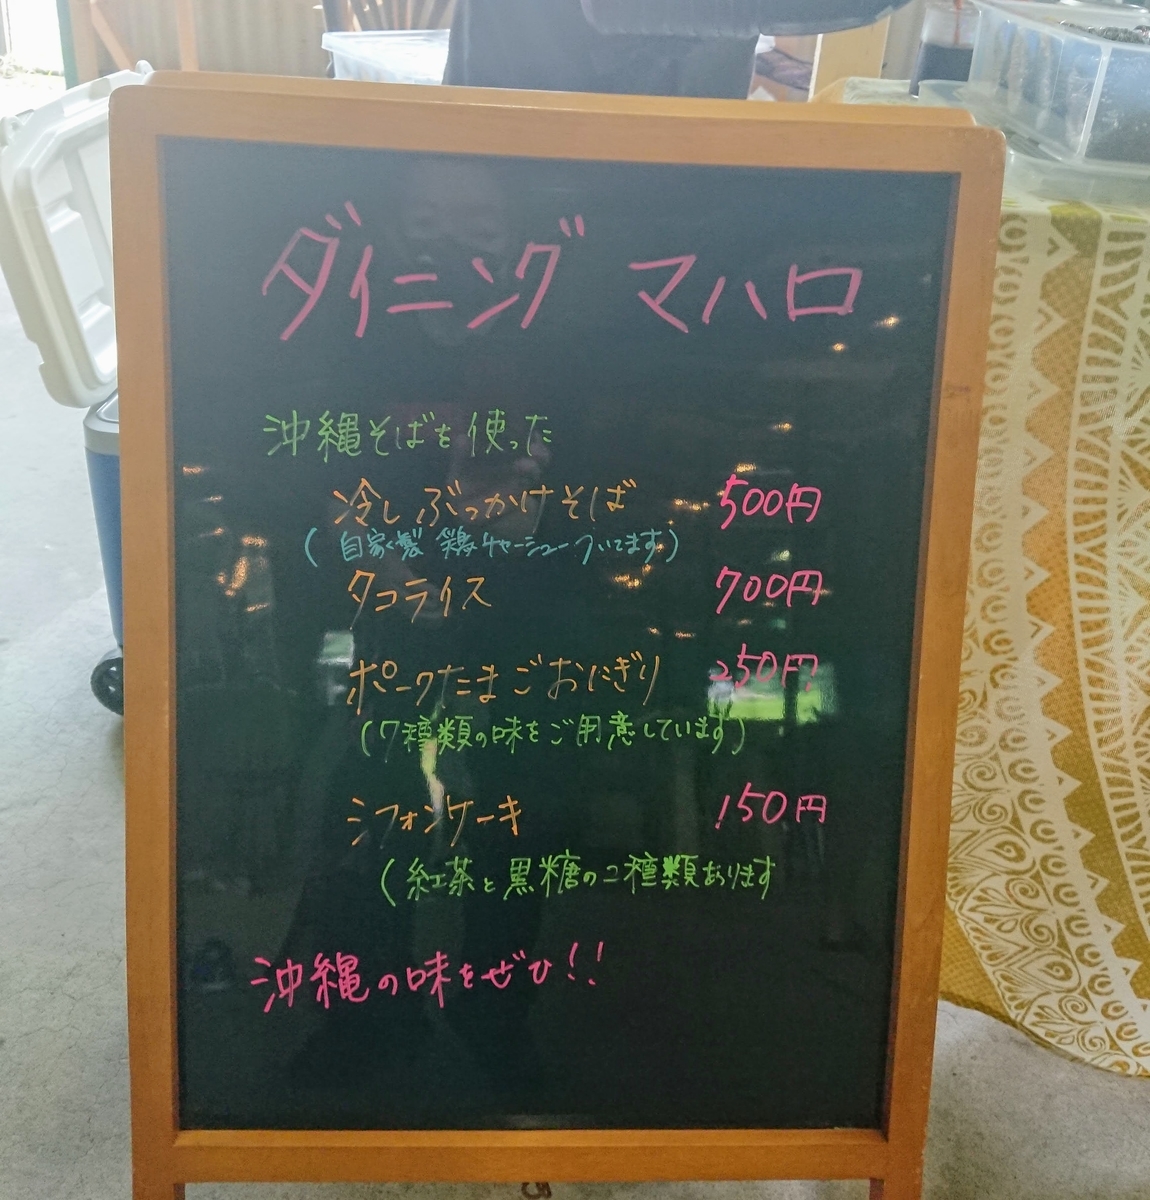 ダイニング マハロ
沖縄そばを使った
冷しぶっかけそば 500円
(自家製 鶏チャーシューついてます)
タコライス 700円
ポークたまごおにぎり 250円
(7種類の味をご用意しています)
シフォンケーキ 150円
(紅茶と黒糖の2種類あります
沖縄の味をぜひ!!